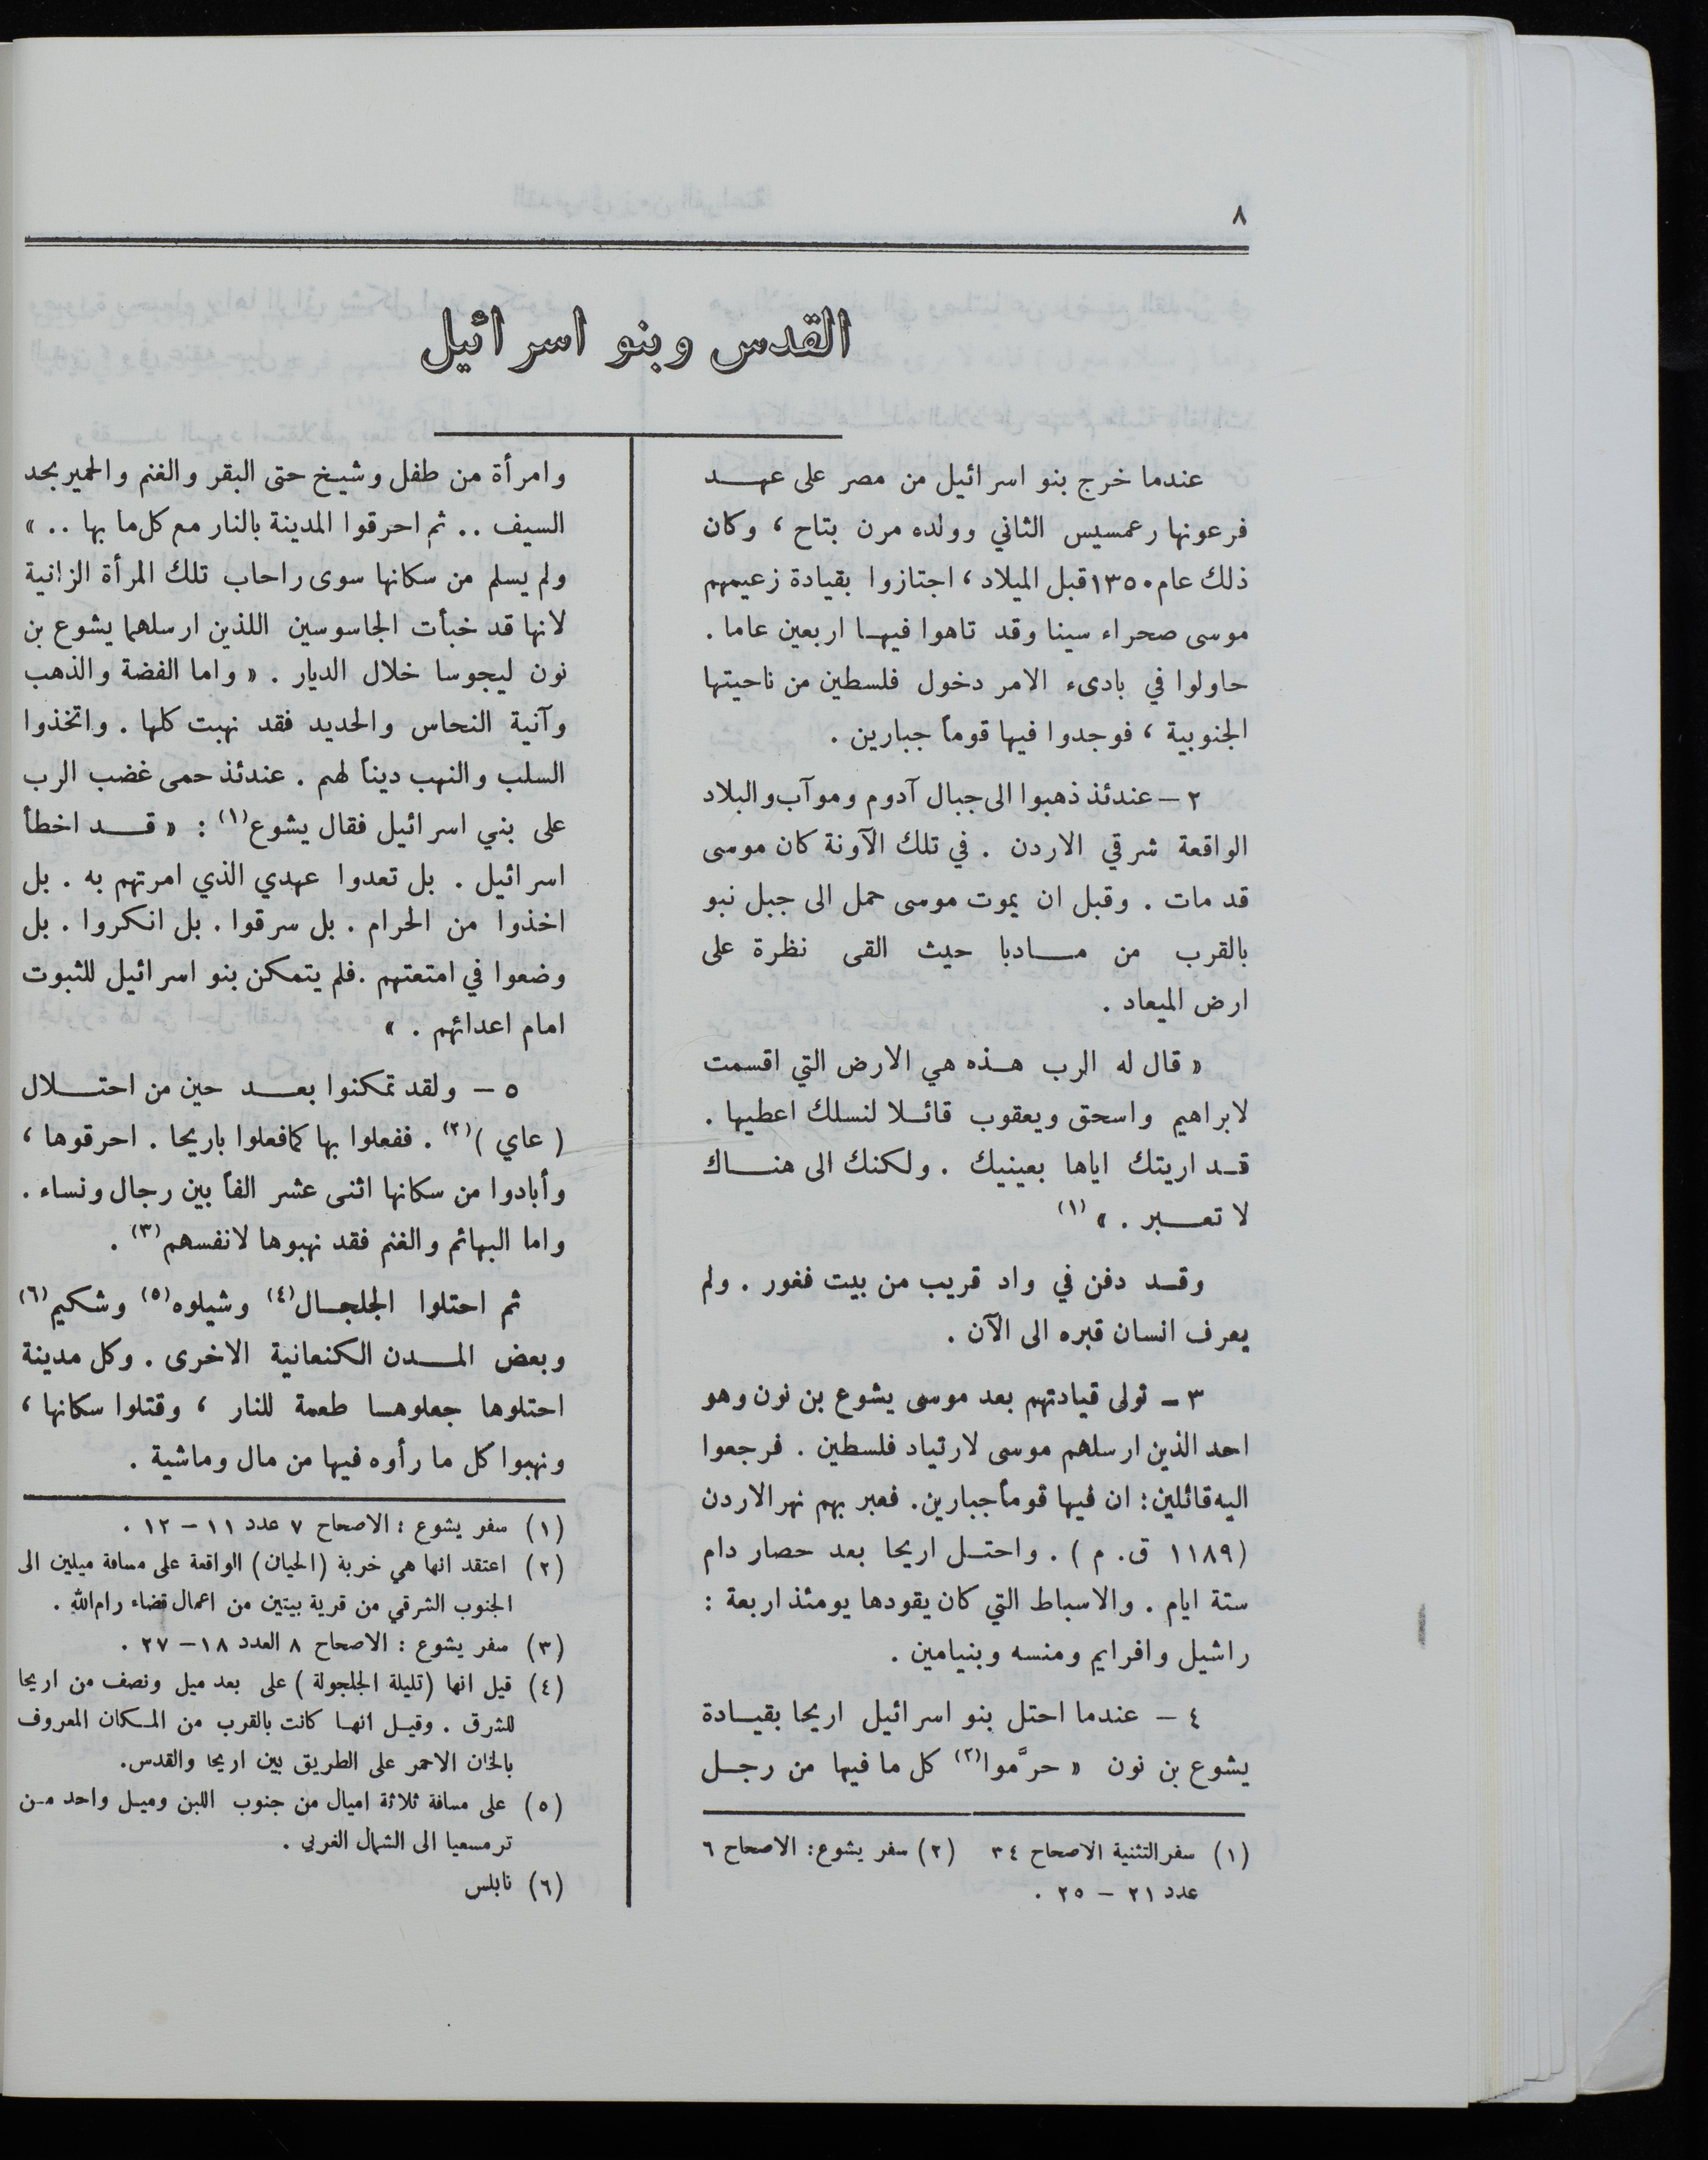 ٨
القدس وبنو اسرائيل
عندما خرج بنو اسرائيل من مصر على عهد
فرعونها رعمسيس الثاني وولده مرن بتاح ، وكان
ذلك عام ١٣٥٠ قبل الميلاد ، اجتازوا بقيادة زعيمهم
موسى صحراء سينا وقد تاهوا فيها اربعين عاما .
حاولوا في بادىء الامر دخول فلسطين من ناحيتها
الجنوبية ، فوجدوا فيها قوماً جبارين .
٢ – عندئذ ذهبوا الى جبال آدوم وموآب والبلاد
الواقعة شرقي الاردن . في تلك الآونة كان موسى
قد مات . وقبل ان يموت موسى حمل الى جبل نبو
بالقرب من مادبا حيث القى نظرة على
ارض الميعاد .
« قال له الرب هذه هي الارض التي اقسمت
لابراهيم واسحق ويعقوب قائلا لنسلك اعطيها .
قد اريتك اياها بعينيك . ولكنك الى هناك
لا تعبر . » (١)
وقد دفن في واد قريب من بيت فغور . ولم
يعرف انسان قبره الى الآن .
٣ – تولى قيادتهم بعد موسى يشوع بن نون وهو
احد الذين ارسلهم موسى لارتياد فلسطين . فرجعوا
اليه قائلين : ان فيها قوماً جبارين. فعبر بهم نهر الاردن
( ١١٨٩ ق. م ) . واحتل اريحا بعد حصار دام
ستة ايام . والاسباط التي كان يقودها يومئذ اربعة :
راشيل وافرايم ومنسه وبنيامين .
٤ – عندما احتل بنو اسرائيل اريحا بقيادة
يشوع بن نون « حرَّموا(٢) كل ما فيها من رجل
(١) سفر التثنية الاصحاح ٣٤ (٢) سفر يشوع : الاصحاح ٦
عدد ٢١ – ٢٥ .
وامرأة من طفل وشيخ حتى البقر والغنم والحمير بحد
السيف .. ثم احرقوا المدينة بالنار مع كل ما بها .. »
ولم يسلم من سكانها سوى راحاب تلك المرأة الزانية
لانها قد خبأت الجاسوسين اللذين ارسلهما يشوع بن
نون ليجوسا خلال الديار . « واما الفضة والذهب
وآنية النحاس والحديد فقد نهبت كلها . واتخذوا
السلب والنهب ديناً لهم . عندئذ حمى غضب الرب
على بني اسرائيل فقال يشوع(١) : « قد اخطأ
اسرائيل . بل تعدوا عهدي الذي امرتهم به . بل
اخذوا من الحرام . بل سرقوا . بل انكروا . بل
وضعوا في امتعتهم . فلم يتمكن بنو اسرائيل للثبوت
امام اعدائهم . »
٥ – ولقد تمكنوا بعد حين من احتلال
( عاي )(٢) . ففعلوا بها كما فعلوا باريحا . احرقوها ،
وأبادوا من سكانها اثنى عشر الفاً بين رجال ونساء .
واما البهائم والغنم فقد نهبوها لانفسهم(٣) .
ثم احتلوا الجلجال(٤) وشيلوه(٥) وشكيم(٦)
وبعض المدن الكنعانية الاخرى . وكل مدينة
احتلوها جعلوها طعمة للنار ، وقتلوا سكانها ،
ونهبوا كل ما رأوه فيها من مال وماشية .
(١) سفر يشوع : الاصحاح ٧ عدد ١١ – ١٢ .
(٢) اعتقد انها هي خربة (الحيان) الواقعة على مسافة ميلين الى
الجنوب الشرقي من قرية بيتين من اعمال قضاء رام الله .
(٣) سفر يشوع : الاصحاح ٨ العدد ١٨ – ٢٧ .
(٤) قيل انها (تليلة الجلجولة) على بعد ميل ونصف من اريحا
للشرق . وقيل انها كانت بالقرب من المكان المعروف
بالخان الاحمر على الطريق بين اريحا والقدس.
(٥) على مسافة ثلاثة اميال من جنوب اللبن وميل واحد من
ترمسعيا الى الشمال الغربي .
(٦) نابلس